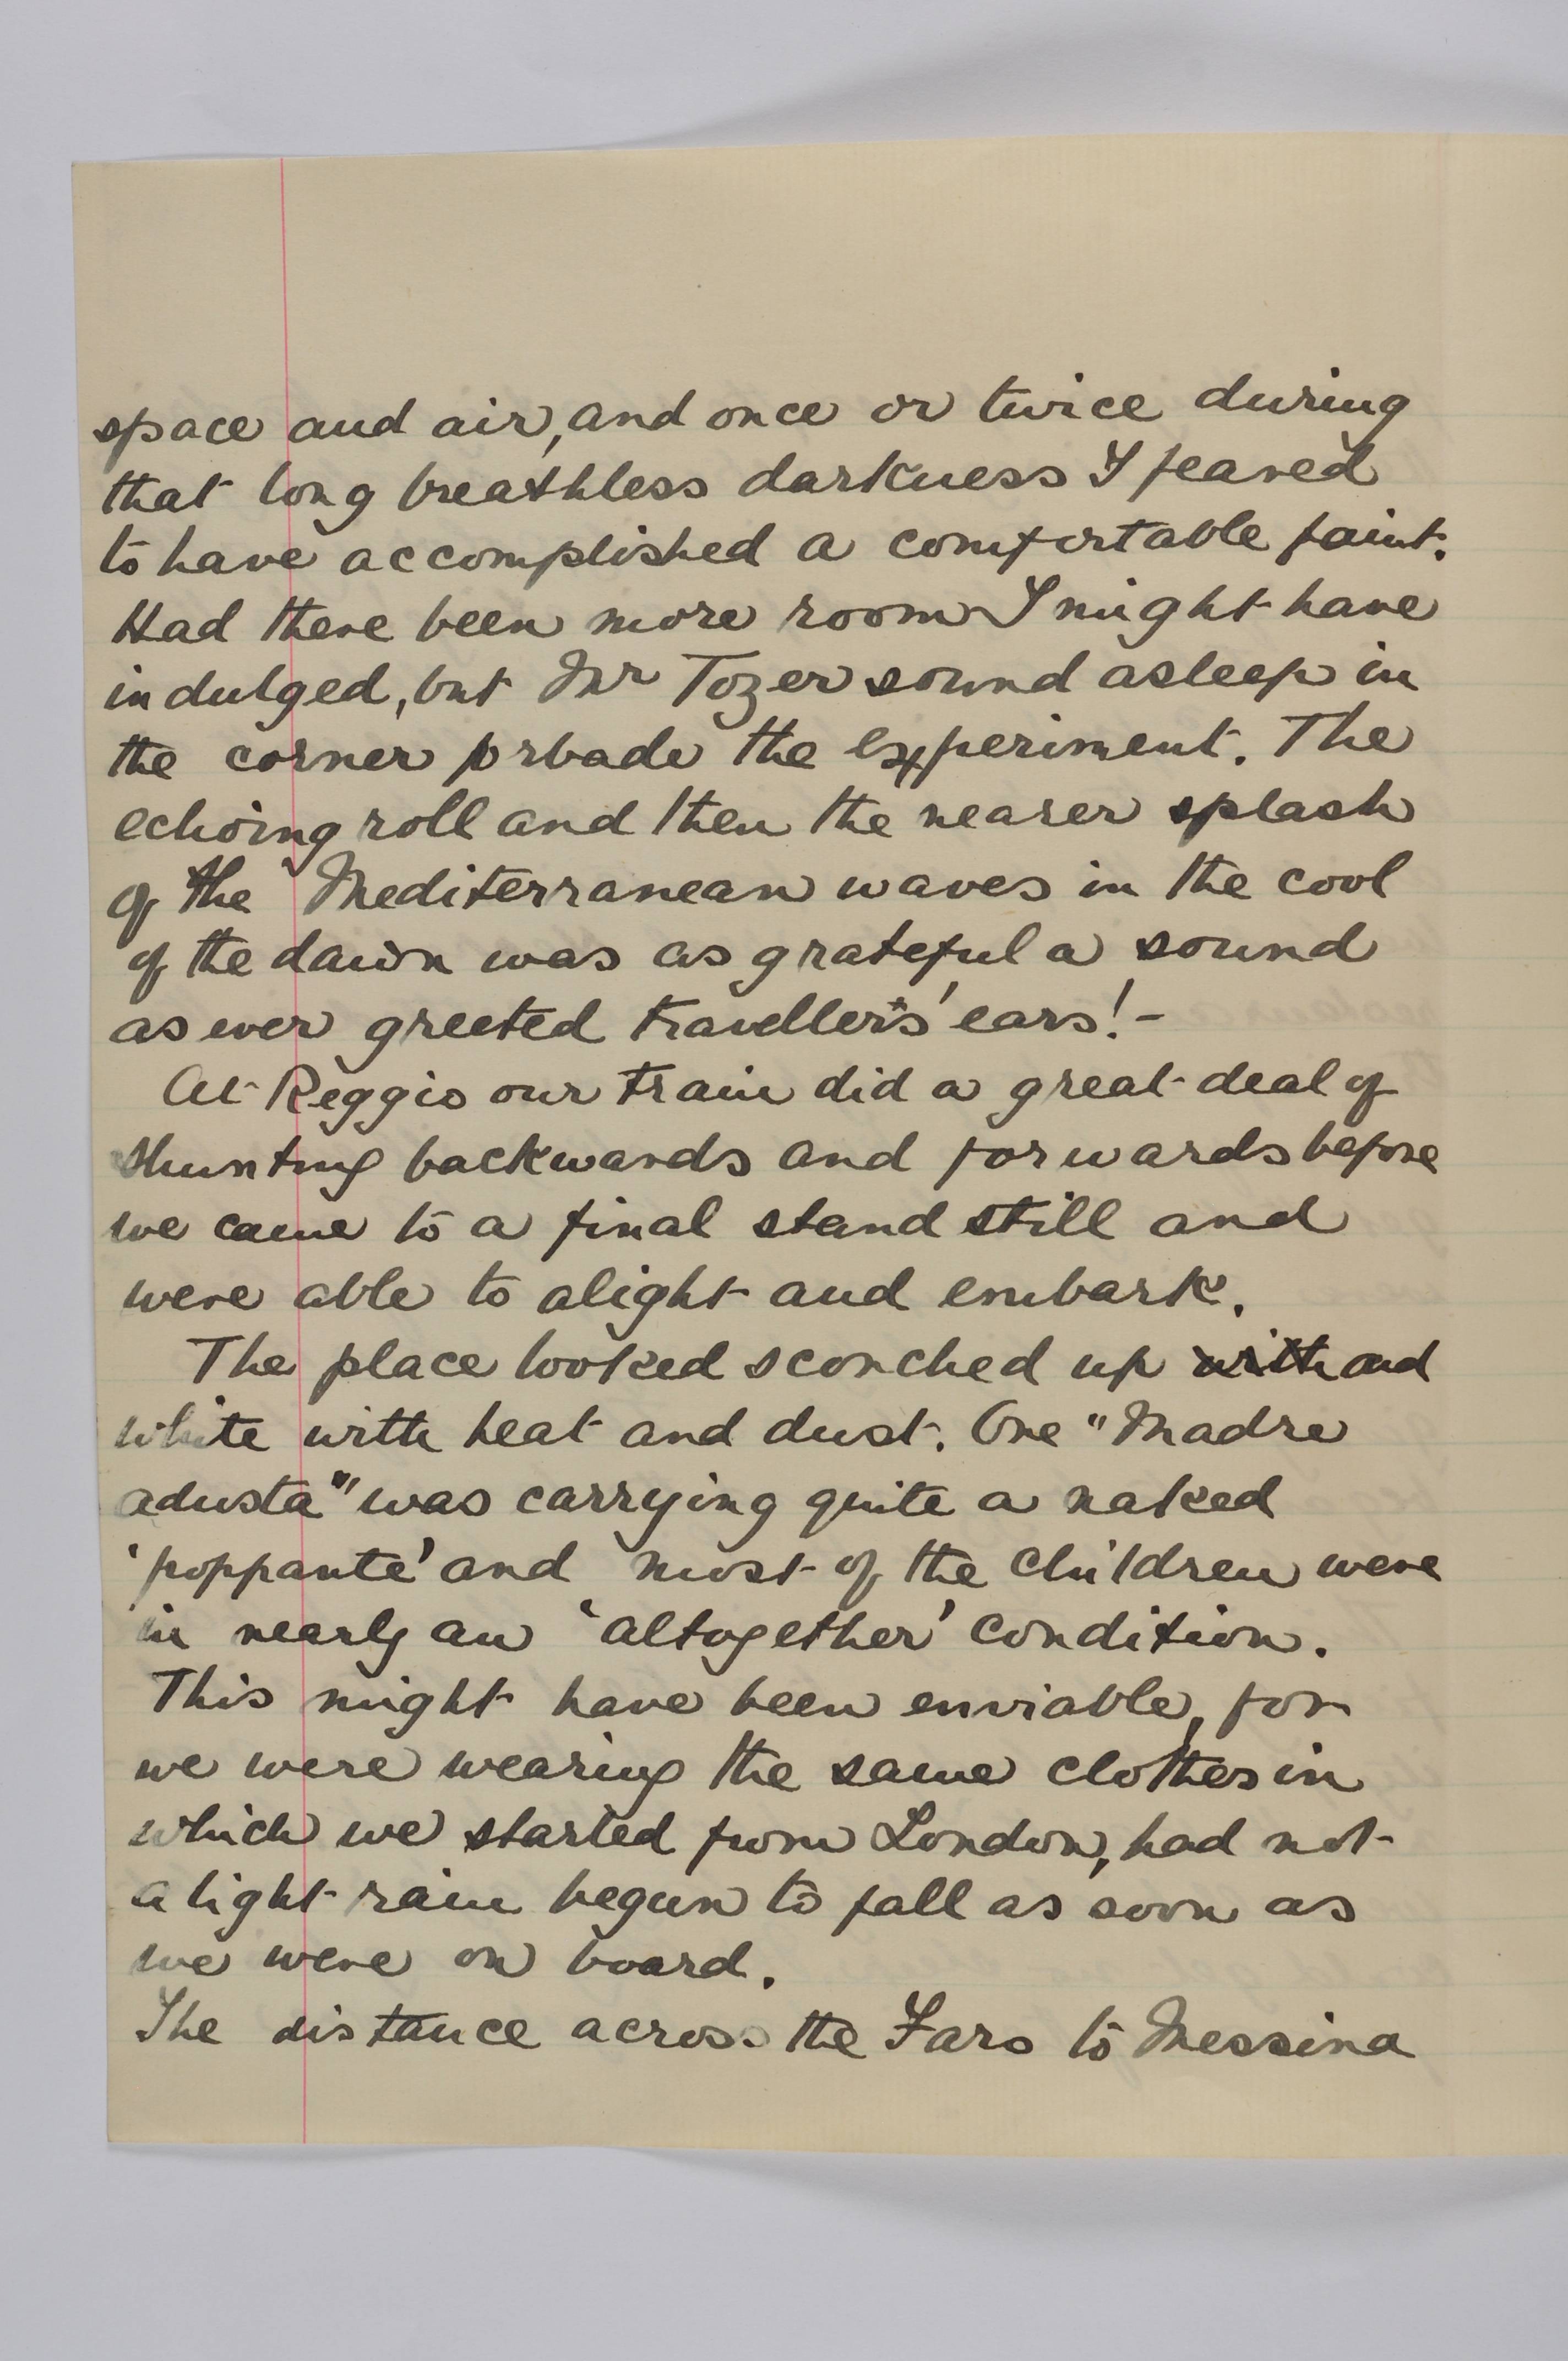 space and air, and once or twice during
that long breathless darkness I feared
to have accomplished a comfortable faint.
Had there been more room I might have
indulged, but Mr Tozer sound asleep in
the corner forbade the experiment. The
echoing roll and then the nearer splash
of the Mediterranean waves in the cool
of the dawn was as grateful a sound
as ever greeted travellers' ears! -
At Reggio our train did a great deal of
shunting backwards and forwards before
we came to a final stand still and
were able to alight and embark.
The place looked scorched up with and
white with heat and dust. One "Madre
adusta" was carrying quite a naked
'poppante' and most of the children were
in nearly an 'altogether' condition.
This might have been enviable, for
we were wearing the same clothes in
which we started from London, had not
a light rain begun to fall as soon as
we were on board.
The distance across the Faro to Messina